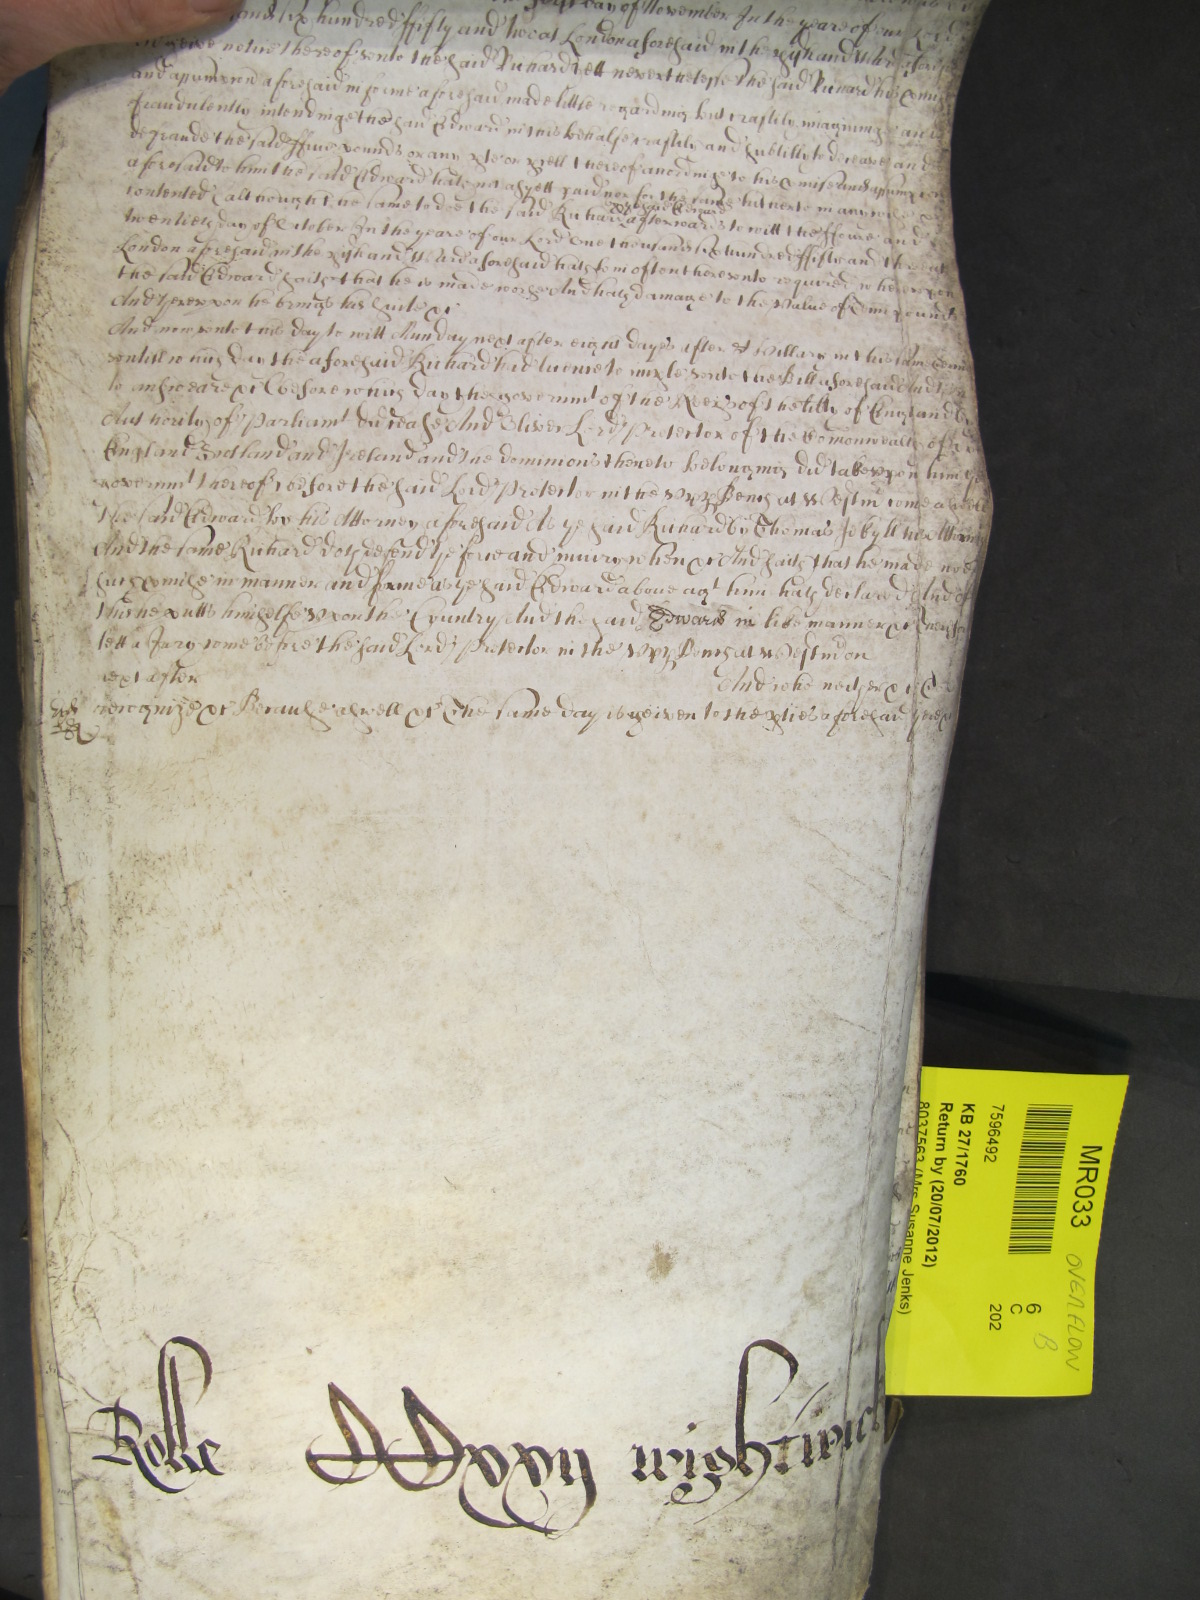 day of November In the yeare of our Lord
thousand six hundred ffifty and two at London aforesaid in the pish and Ward aforesaid
notice thereof vnto the said Richard Yett neverthelesse the said Richard his pmise
and assumpcion aforesaid in forme aforesaid made little regarding but craftily imagining and
fraudulently intending the said Edward in this behalfe craftily and subtilly to deceave and
defraude the said ffive pounds or any pte or pcell thereof according to his pmise and assumpcion
aforesaid to him the said Edward hath not as yett paid nor for the same hitherto in any wise
contented (although the same to doe the said Richard by the said Edward afterwards to witt the ffoure and
twentieth day of October In the yeare of our Lord One thousand six hundred ffifty and three att
London aforesaid in the pish and Ward aforesaid hath byn often therevnto required wherevpon
the said Edward saith that he is made worse And hath damage to the value of Tenn pounds
And therevpon he brings his suite &c
And now vnto this day to witt Munday next after eight dayes after St Hillary in this same Terme
vntill which day the aforesaid Richard had licence to imple vnto the Bill aforesaid And then
to answeare &c (before which day the governmt of the Keeps of the libty of England by
Authority of Parliamt did cease And Oliver Lord Protector of the Comonwealth of
England Scotland and Ireland and the dominions thereto belonging did take vpon him ye
governmt thereof) before the said Lord Protector in the Vpp Bench at Westm come aswell
the said Edward by his Attorney aforesaid As ye said Richard by Thomas Jekyll his Attorney
And the same Richard doth defend ye force and iniury when &c And saith that he made noe
such pmise in manner and forme as ye said Edward above agt him hath declared And of
this he putts himselfe vpon the Country And the said Edward in like manner &c Therefore
lett a Jury come before the said Lord Protector in the Vpp Bench at Westm on
next after And who neither &c To
recognize &c Because aswell &c The same day is geiven to the pties aforesaid there
Rolle Wightwick
MR033 OVERFLOW
B
6
C
202
7596492
KB 27/1760
Return by (20/07/2012)
8037563 (Mrs Susanne Jenks)